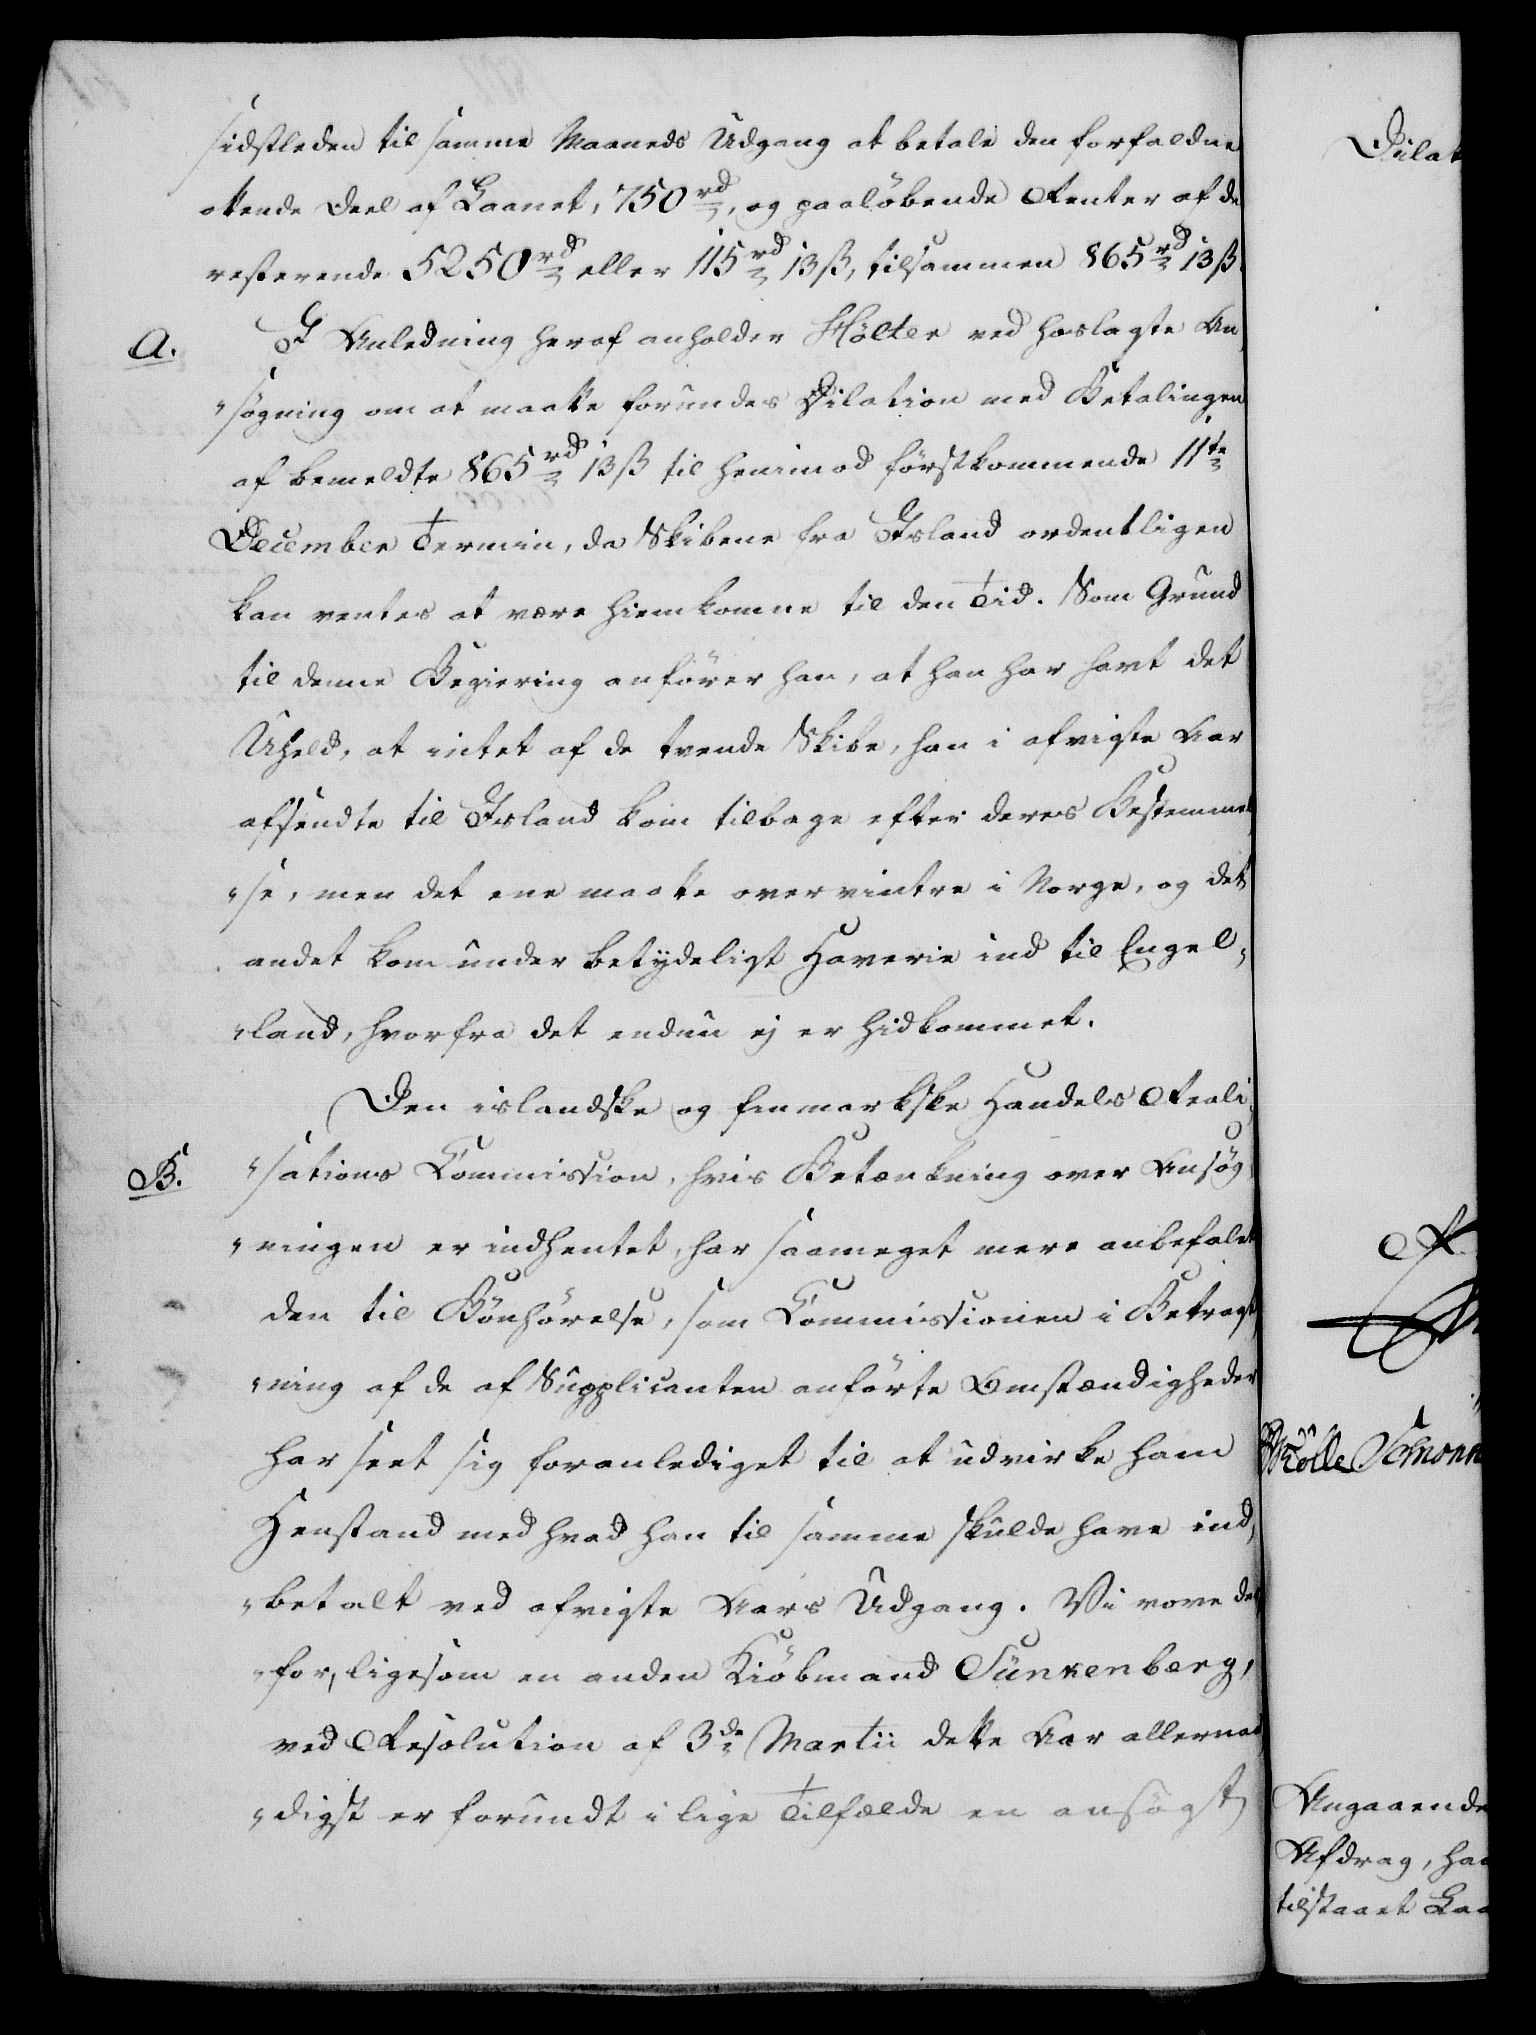 sidstleden til samme Maaneds Udgang at betale den forfaldne
ottende Deel af Laanet, 750 rd, og paaløbende Renter af de
resterende 5250 rd eller 115 rd 13 ß, tilsammen 865 rd 13 ß.
A. I Anledning heraf anholder Hölter ved hoslagte An
„søgning om at maatte forundes Dilation med Betalingen
af bemeldte 865 rd 13 ß til henimod førstkommende 11te
December Termin, da Skibene fra Island ordentligen
kan ventes at være hiemkomne til den Tid. Som Grund
til denne Begiering anfører han, at han har havt det
Uheld, at intet af de tvende Skibe, han i afvigte Aar
afsendte til Island kom tilbage efter deres Bestemmel
„se, men det ene maatte overvintre i Norge, og det
andet kom under betydeligt Haverie ind til Engel„
„land, hvorfra det endnu ej er hidkommet.
Den islandske og finmarkske Handels Reali„
B. „sations Commission, hvis Betænkning over Ansøg„
„ningen er indhentet, har saameget mere anbefalet
den til Bønhørelse, som Commissionen i Betragt
„ning af de af Supplicanten anførte Omstændigheder
har seet sig foranlediget til at udvirke ham
Henstand med hvad han til samme skulde have ind„
„betalt ved afvigte Aars Udgang. Vi vove der
„for, ligesom en anden Kiøbmand Sünkenberg,
ved Resolution af 3de Martii dette Aar allernaa
„digst er forundt i lige Tilfælde en ansøgt
Dilat
R.
Angaaende
Afdrag, ha
tilstaaet Laa